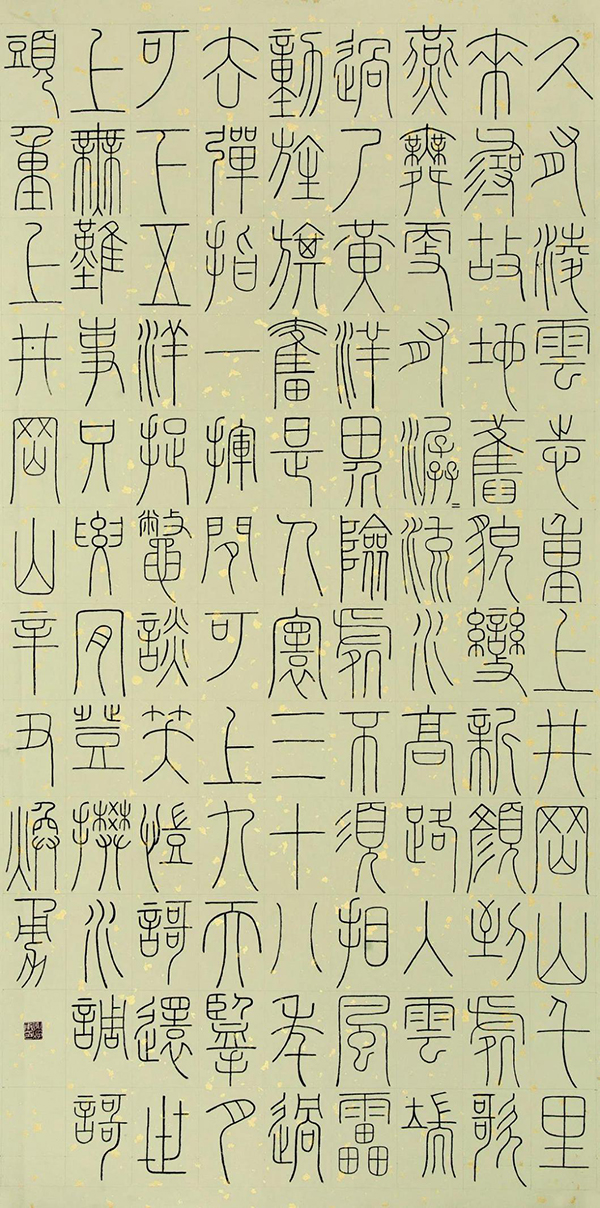 久有凌雲志重上井岡山千里
來尋故地舊貌變新顏到處歌
燕舞更有潺=流水高路入雲端
過了黃洋界險處不須看風雷
動旌旗奮是人寰三十八年過
去彈指一揮間可上九天擥月
可下五洋捉鼈談笑愷謌還世
上無難事只要肯登攀水調謌
頭重上井岡山辛丑煥勇